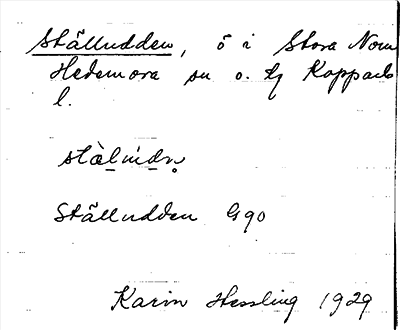 Ställudden, ö i Stora Norn
Hedemora sn o. tg Kopparb
l.
Ställudden G90
Karin Hessling 1929